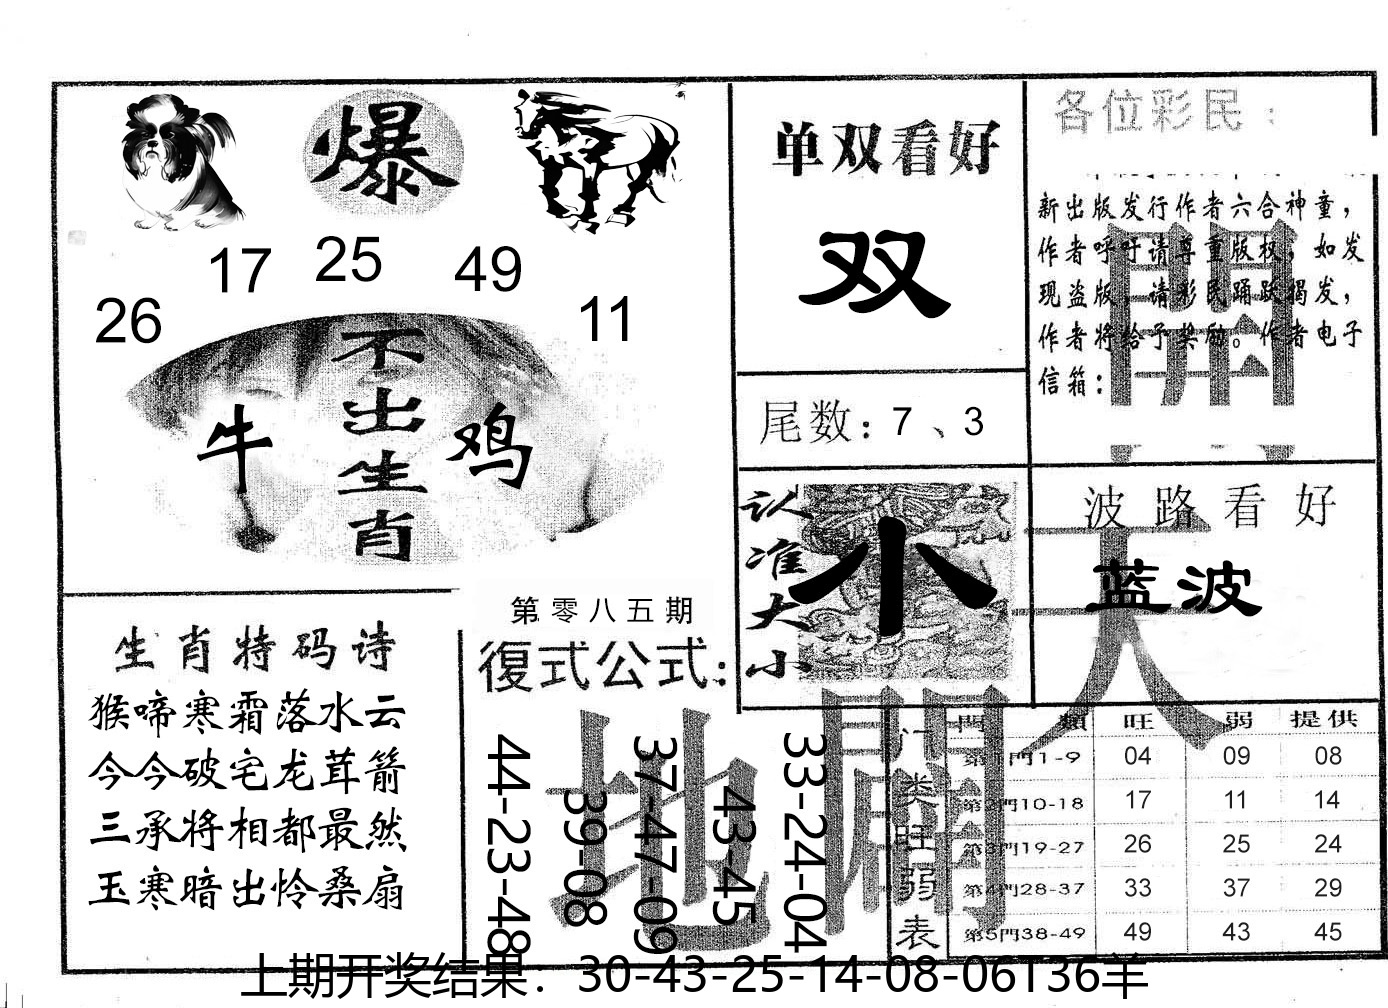 爆
17 25 49
26 11
不出生肖
牛 鸡
单双看好
双
尾数：7、3
各位彩民：
新出版发行作者六合神童，
作者呼吁请尊重版权，如发
现盗版，请彩民踊跃揭发，
作者将给予奖励。作者电子
信箱：
開
认准大小
小
波路看好
蓝波
天
生肖特码诗
猴啼寒霜落水云
今今破宅龙茸箭
三承将相都最然
玉寒暗出怜桑扇
第零八五期
復式公式：
44-23-48
39-08
37-47-09
43-45
33-24-04
地
門類 旺 弱 提供
门类旺弱表
第1門1-9 04 09 08
第2門10-18 17 11 14
第3門19-27 26 25 24
第4門28-37 33 37 29
第5門38-49 49 43 45
上期开奖结果：30-43-25-14-08-06T36羊